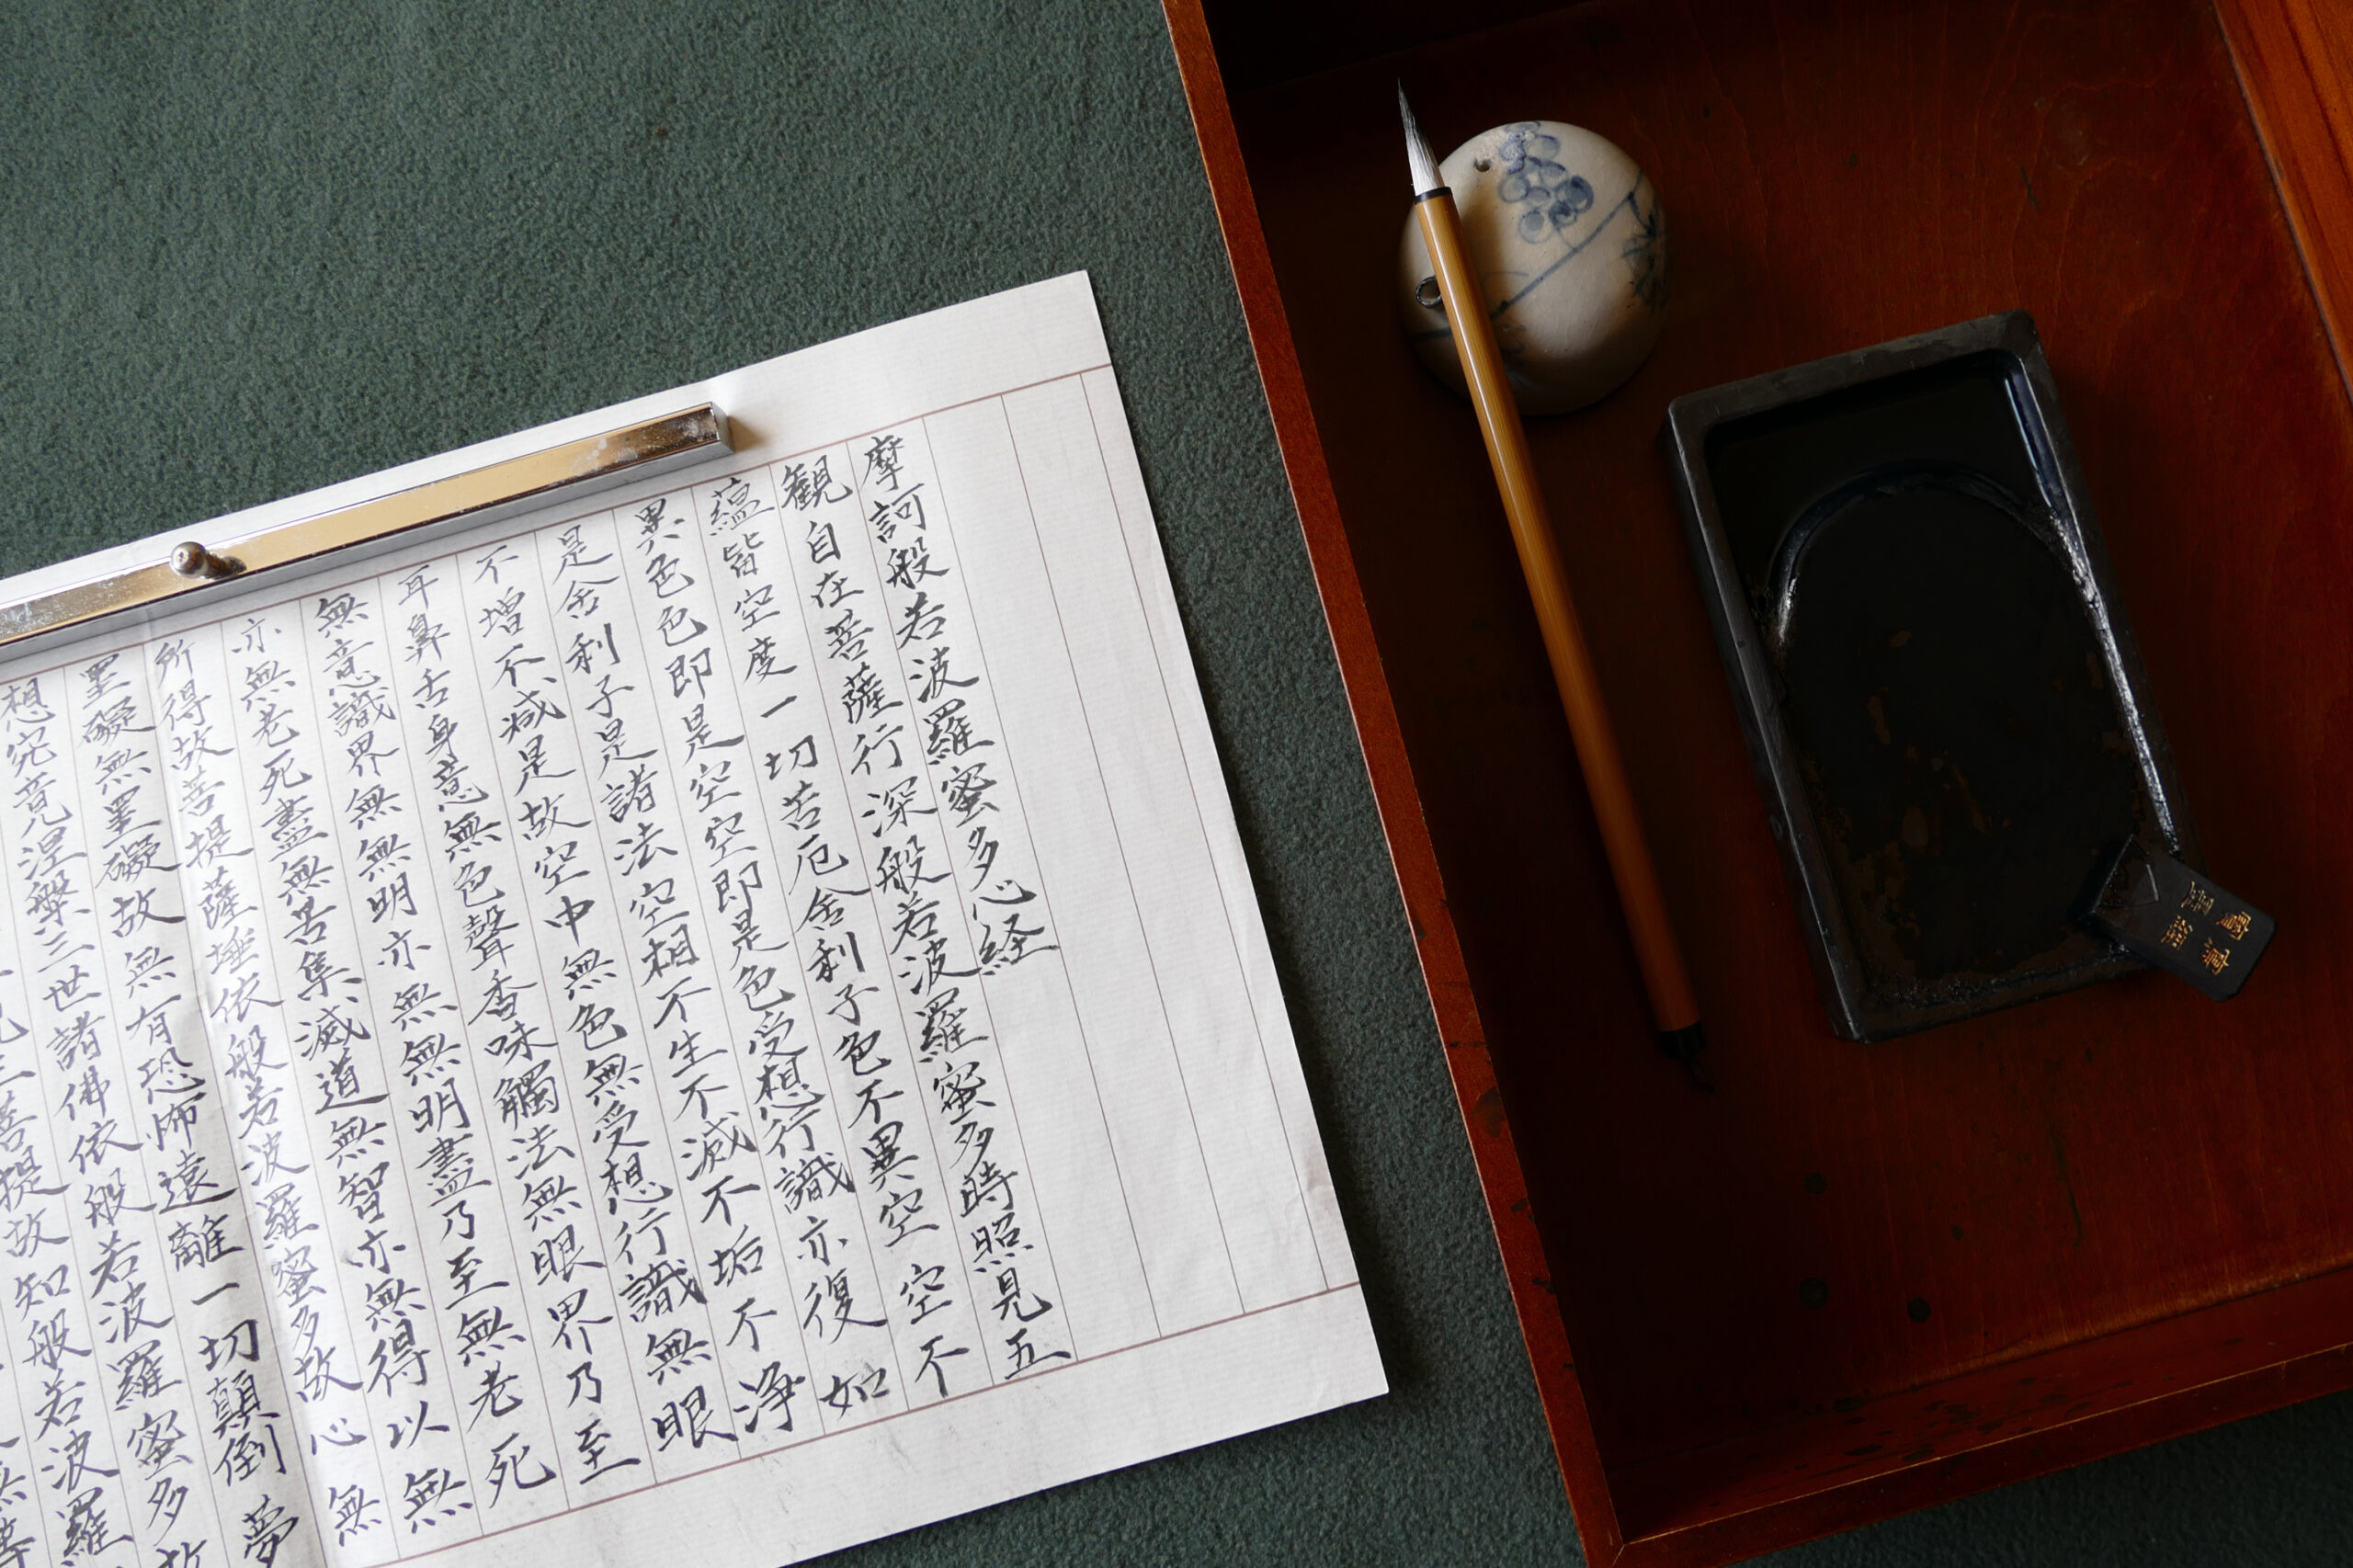 摩訶般若波羅蜜多心経
観自在菩薩行深般若波羅蜜多時照見五
蘊皆空度一切苦厄舎利子色不異空空不
異色色即是空空即是色受想行識亦復如
是舎利子是諸法空相不生不滅不垢不浄
不増不減是故空中無色無受想行識無眼
耳鼻舌身意無色聲香味觸法無眼界乃至
無意識界無無明亦無無明盡乃至無老死
亦無老死盡無苦集滅道無智亦無得以無
所得故菩提薩埵依般若波羅蜜多故心無
罣礙無罣礙故無有恐怖遠離一切顛倒夢
想究竟涅槃三世諸佛依般若波羅蜜多故
三菩提故知般若波羅